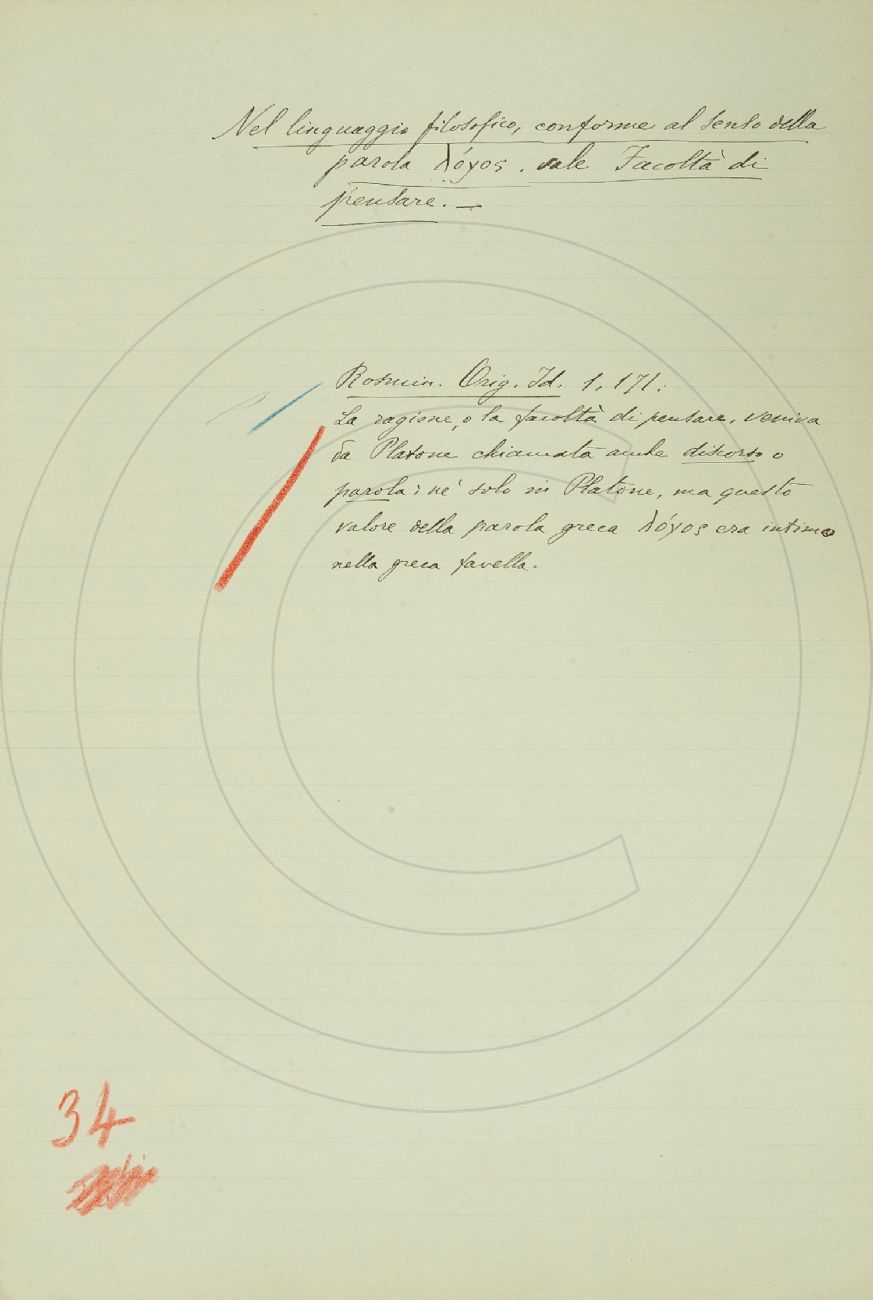 Nel linguaggio filosofico, conforme al senso della
parola λόγος, vale Facoltà di
pensare. —
Rosmin. Orig. Id. 1. 171:
La ragione, o la facoltà di pensare, veniva
da Platone chiamata anche discorso o
parola; nè solo in Platone, ma questo
valore della parola greca λόγος era intimo
nella greca favella.
34